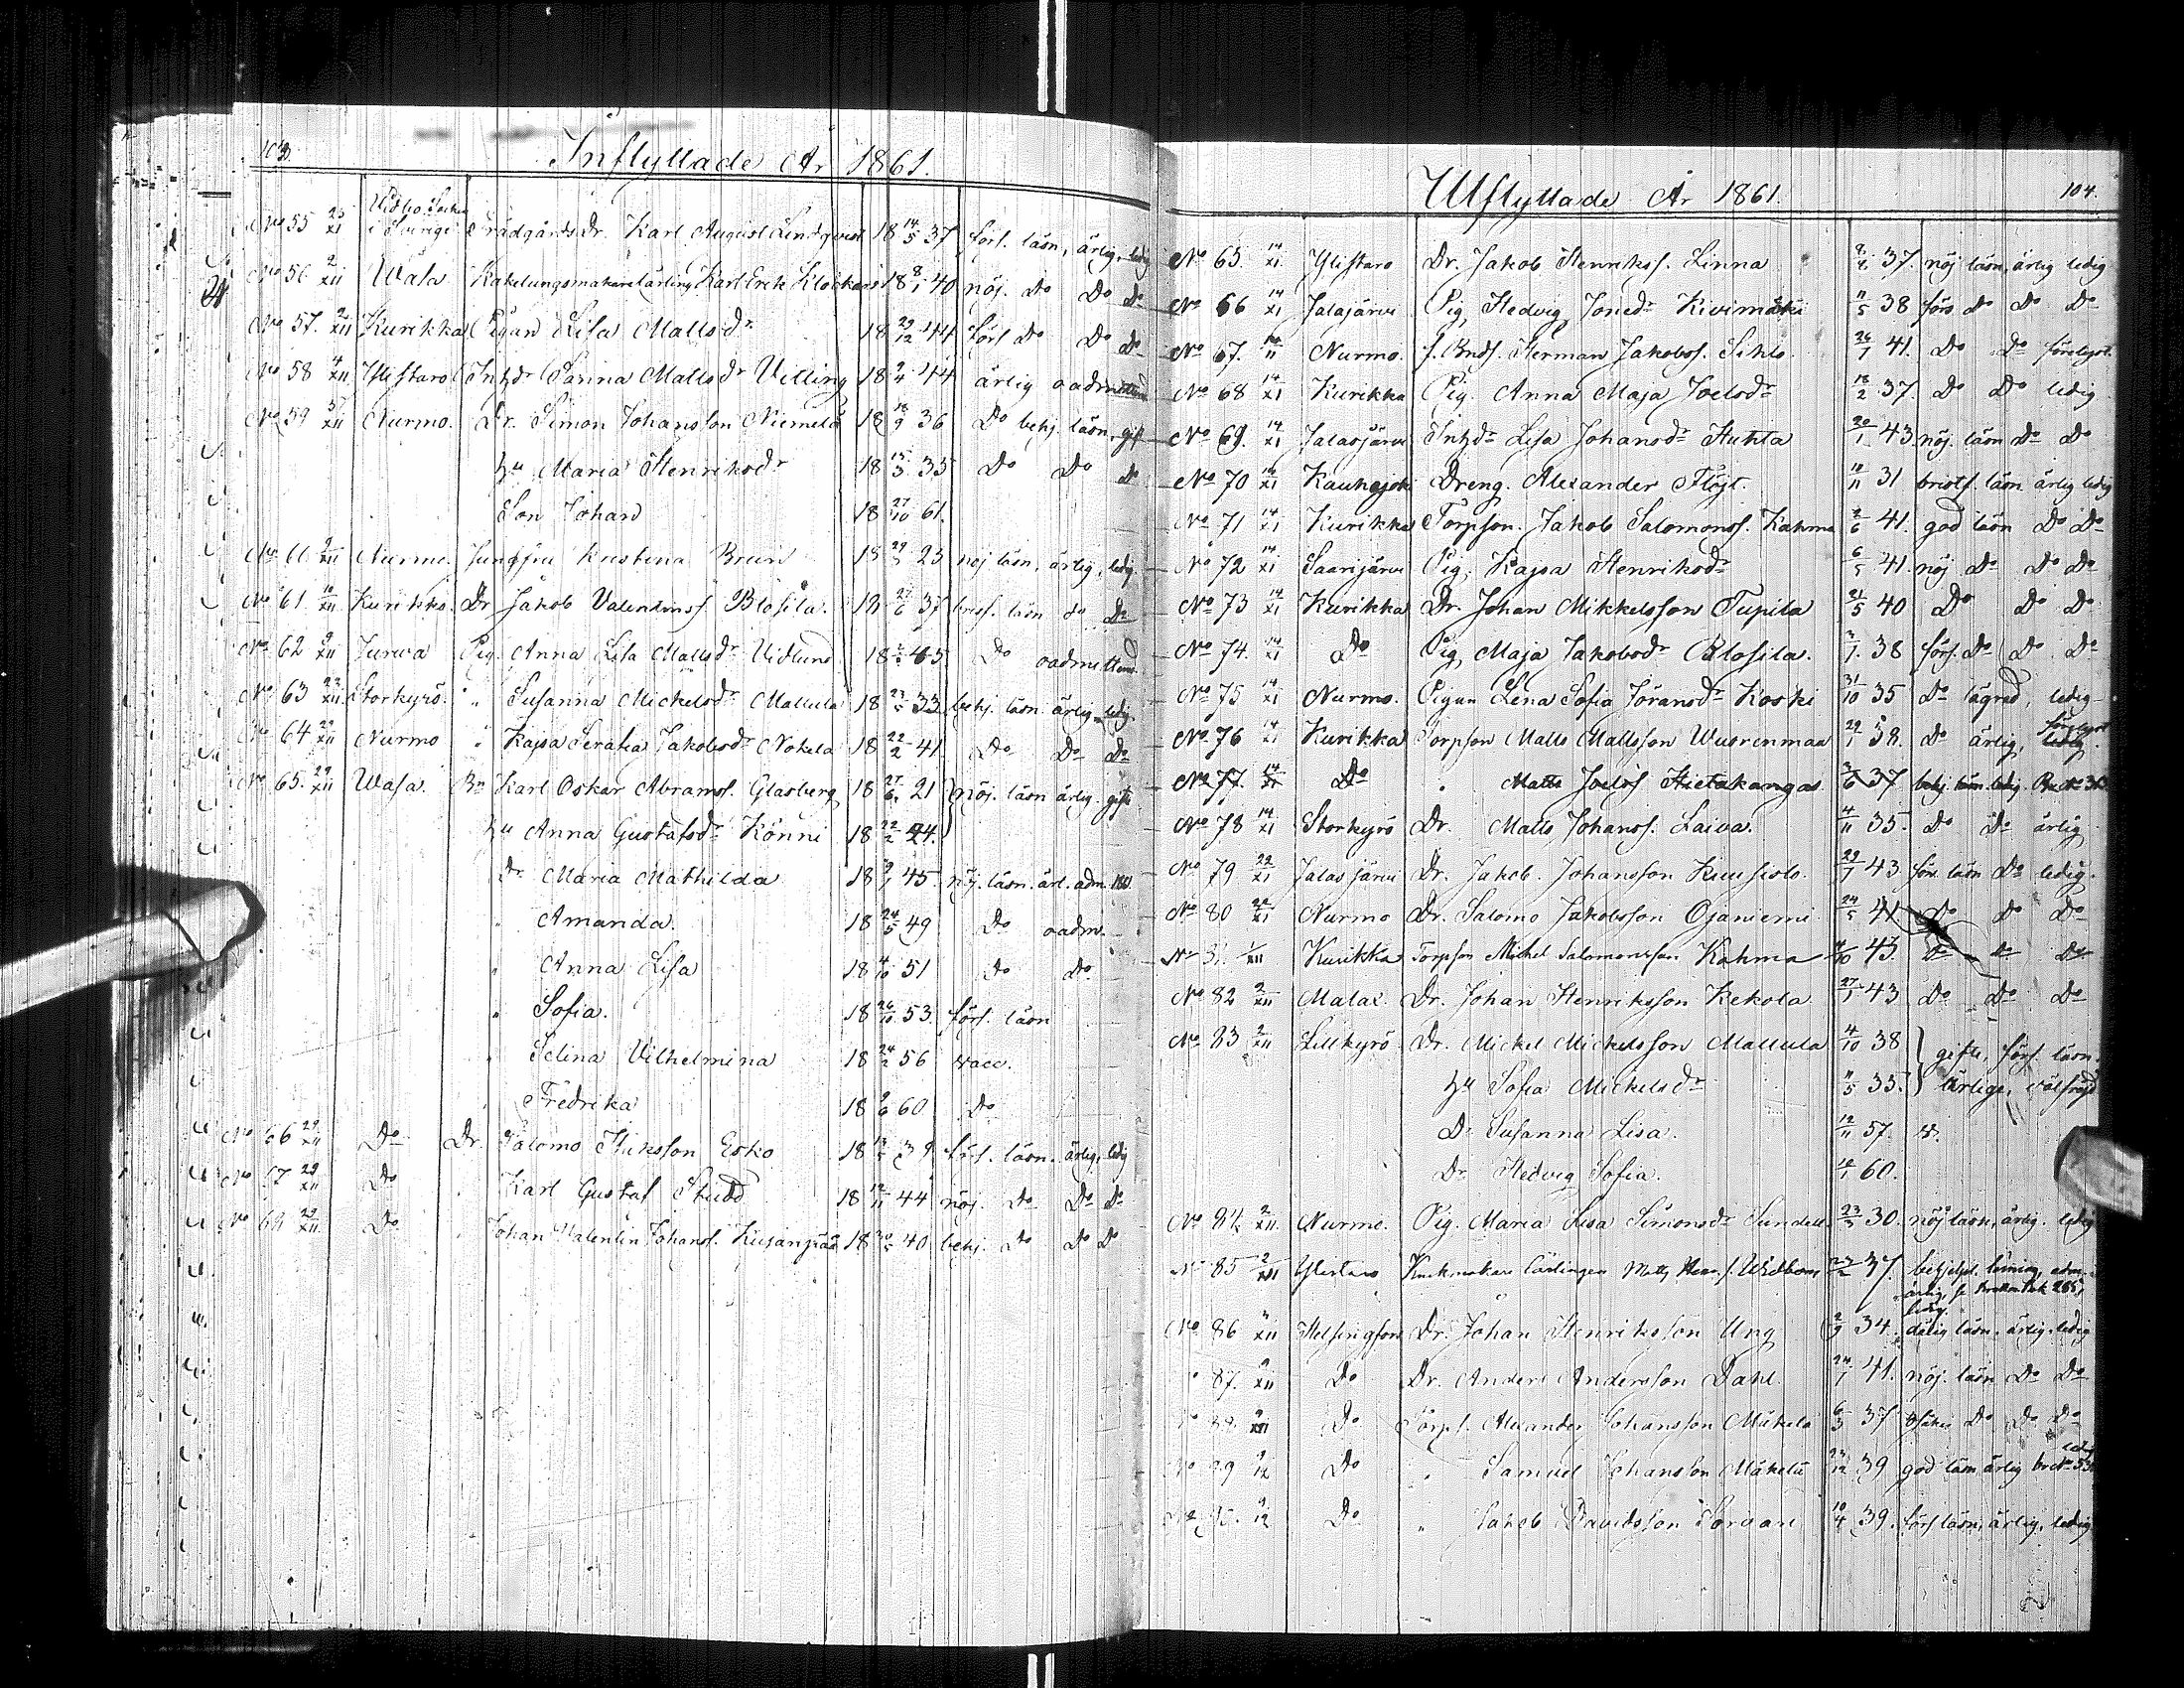 103.
Inflyttade År 1861.
Vidbo Socken
No 55 25/XI i Sverige Trädgårds Dr. Karl August Lindqvist 18 14/5 37 förs. läsn, ärlig, ledig
No 56 2/XII Wasa Kakelungsmakarelärling Karl Erik Klockars 18 8/1 40 nöj. Do Do Do
No 57. 2/XII Kurikka Pigan Lisa Mattsdr 18 29/12 44 förs Do Do Do
No 58 4/XII Ylistaro Inhdr Sanna Mattsdr Villing 18 2/4 44 ärlig oadmitterad
No 59 XII Nurmo. Dr. Simon Johansson Niemelä 18 18/9 36 Do behj. läsn, gift
Hu Maria Henriksdr 18 35 Do Do Do
Son Johan 18 27/10 61.
No 60 9/XII Nurmo. Jungfru Kristina Brun 18 23 nöj läsn, ärlig, ledig.
No 61 10/XII Kurikka. Dr Jakob Valentinss. Blåsila. 18 27/6 37 förs. läsn do Do
No 62 9/XII Jurva Pig. Anna Lisa Mattsdr Vidlund 18 45 Do oadmitterad.
No 63 23/XII Storkyrö. " Susanna Mickelsdr Mattula 18 33 behj. läsn. ärlig, ledig.
No 64 29/XII Nurmo " Kajsa Serafia Jakobsdr Nohela 18 22/2 41 Do Do Do
No 65. 29/XII Wasa. Bn Karl Oskar Abramss. Glasberg 18 27/6 21 } nöj. läsn ärlig. gifte
Hu Anna Gustafsdr Könni 18 22/2 24. }
Dr Maria Mathilda 18 45. nöj. läsn. ärl. adm.
" Amanda. 18 24/5 49 Do oadm.
" Anna Lisa 18 4/10 51 Do Do
" Sofia. 18 26/10 53. förs. läsn
" Selina Vilhelmina 18 24/2 56 vacc.
" Fredrika 18 60 Do
No 66 29/XII Do Dr. Salomo Esko 18 39 förs. läsn. ärlig, ledig
No 67 29/XII Do " Karl Gustaf Studd 18 12/11 44 nöj. Do Do Do
No 68 29/XII Do " Johan Valentin Johanss. Kujanpää 18 40 behj. Do Do Do
Utflyttade År 1861. 104.
No 65. 14/XI. Ylistaro Dr. Jakob Henrikss. Linna 37. nöj läsn, ärlig ledig
No 66 14/XI Jalasjärvi Pig. Hedvig Jonedr Kivimäki 11/5 38 förs do Do Do
No 67. Nurmo. f. Bnds. Herman Jakobss. Sihlo. 26/1 41. Do Do
No 68 14/XI Kurikka Pig. Anna Maja Joelsdr 18/2 37. Do Do ledig
No 69. 14/XI Jalasjärvi Inhdr Lisa Johansdr Huhta 20/1 43 nöj. läsn Do Do
No 70 14/XI Kauhajoki Dreng. Alexander Flöjt. 10/11 31 bristf. läsn. ärlig ledig
No 71 14/XI Kurikka Torpson. Jakob Salomonss. Kahma 2/6 41. god läsn Do Do
No 72 14/XI Saarijärvi Pig. Kajsa Henriksdr 6/5 41. nöj Do Do Do
No 73 14/XI Kurikka Dr. Johan Mikkelsson Tupila 21/5 40 Do Do Do
No 74. 14/XI Do Pig. Maja Jakobsdr Blåsila. 38 förs. Do Do Do
No 75 14/XI Nurmo. Pigan Lena Sofia Göransdr Koski 31/10 35 Do lägrad, ledig
No 76 14/XI Kurikka Torpson Matts Mattsson Wuorenmaa 29/1 38. Do ärlig, ledig
No 77. 14/XI Do " Matts Joelss Hietakangas 3/6 37 behj. läsn. ledig.
No 78 14/XI Storkyrö Dr. Matts Johanss. Laiva. 4/11 35. Do Do ärlig
No 79 22/XI Jalasjärvi Dr. Jakob Johansson Kuusisto. 29/7 43 förs. läsn Do ledig.
No 80 22/XI Nurmo Dr. Salomo Jakobsson Ojaniemi 24/5 41 Do Do Do
No 81. /XII Kurikka Torpson Mickel Salomonsson Kahma /10 43. Do Do Do
No 82 2/XII Malax. Dr. Johan Henriksson Kekola 27/1 43 Do Do Do
No 83 2/XII Lillkyrö Dr. Mickel Mickelsson Mattula 4/10 38 } gifte, förs. läsn.
Hu Sofia Mickelsdr 11/5 35. } ärliga, välfrejd
Dr Susanna Lisa. 12/11 57. v.
Dr Hedvig Sofia. 60.
No 84 2/XII. Nurmo. Pig. Maria Lisa Simonsdr Sundell 30. nöj läsn, ärlig. ledig
No 85 2/XII Ylistaro Krukmakare lärlingen Matts Widbom 37. behjelpl. läsning, adm.
ärlig,
ledig.
No 86 XII Helsingfors Dr. Johan Henriksson Ung 2/9 34. dålig läsn. ärlig. ledig
" 87. 9/XII Do Dr. Anders Andersson Dahl. 24/7 41. nöj. läsn Do Do
No 88. 9/XII Do Torps. Alexander Johansson Mäkelä 6/3 37 Do Do Do
ledig
No 89 9/12 Do " Samuel Johansson Mäkelä 23/12 39 god läsn ärlig
No 90. 9/12 Do " Jakob Davidsson Sorvari 10/4 39. förs läsn, ärlig, ledig